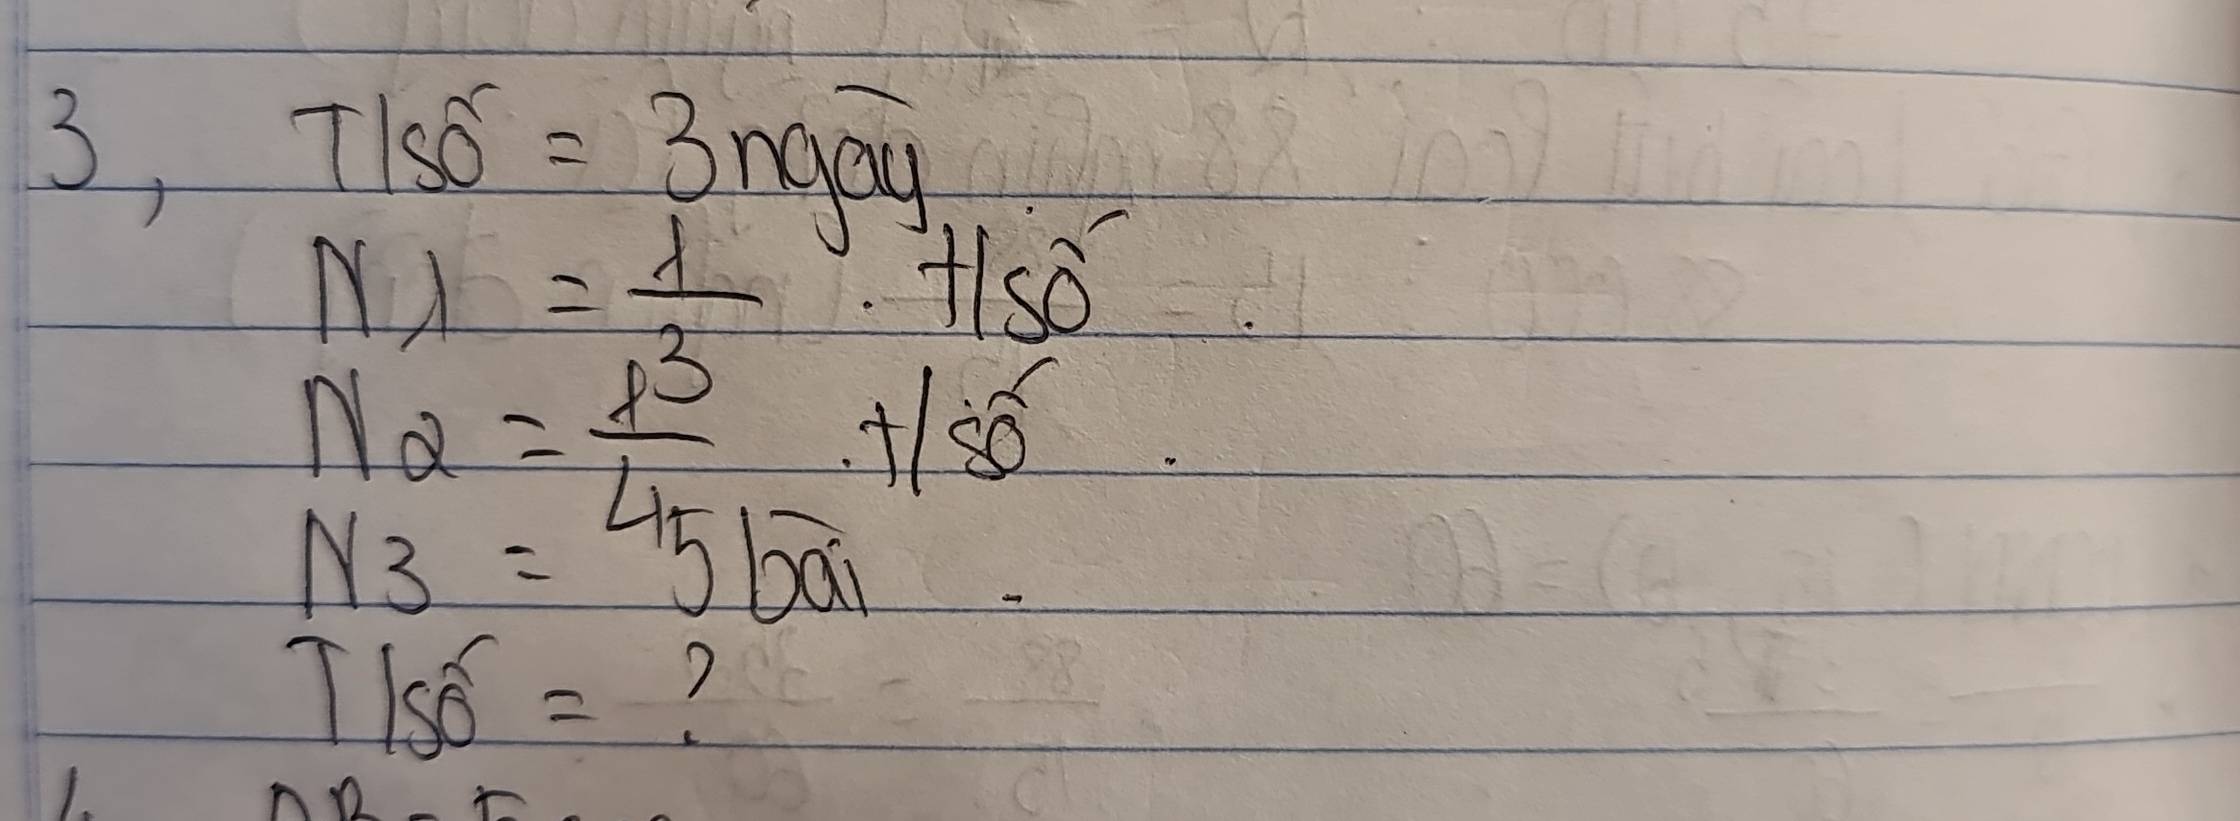 3, T/số = 3 ngày
N1 = 1/3 . t/số .
N2 = 1/4 . t/số .
N3 = 5 bài .
T/số = ?